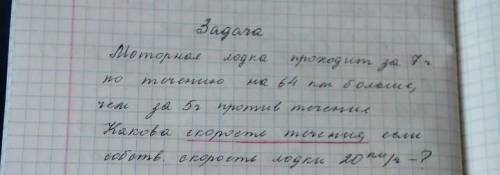 Задача
Моторная лодка проходит за 7 ч
по течению на 64 км больше,
чем за 5ч против течения
Какова скорость течения, если
собств. скорость лодки 20 км/ч -?